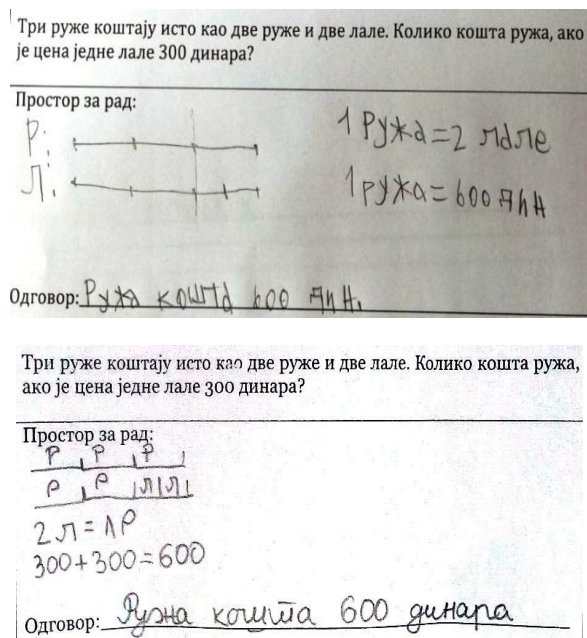 Три руже коштају исто као две руже и две лале. Колико кошта ружа, ако
је цена једне лале 300 динара?
Простор за рад:
Р:
Л:
1 Ружа=2 лале
1 ружа=600 дин
Одговор: Ружа кошта 600 дин.
Три руже коштају исто као две руже и две лале. Колико кошта ружа,
ако је цена једне лале 300 динара?
Простор за рад:
Р Р Р
Р Р Л Л
2Л=1Р
300+300=600
Одговор: Ружа кошта 600 динара